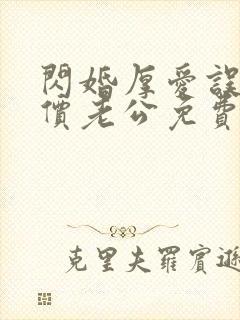 閃婚厚愛誤
價老公免費
克里夫羅賓遜